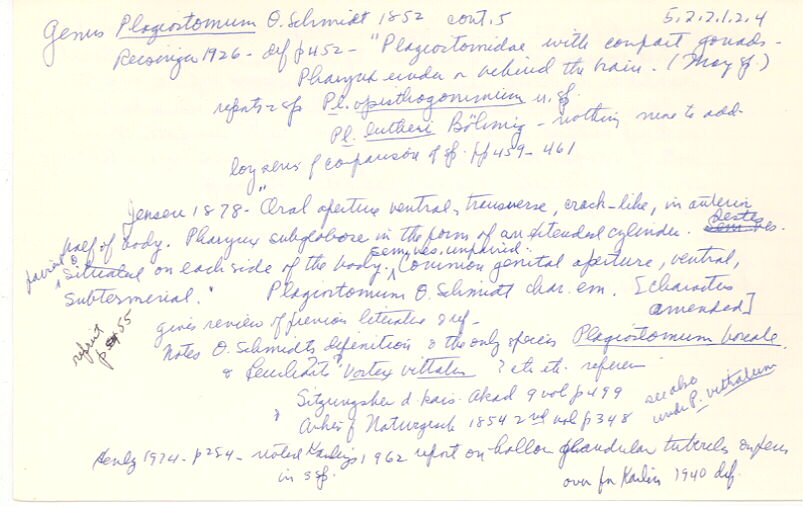 Genus Plagiostomum O. Schmidt 1852 cont. 5 5.2.2.1.2.4
Reisinger 1926 - def p 452 - "Plagiostomidae with compact gonads -
Pharynx under or behind the brain. (Many sp.)
reports 2 sp Pl. opisthogonimum n. sp.
Pl. lutheri Böhmig - nothing more to add -
long series of comparison of sp. pp 459-461
Jensen 1878 - "Oral aperture ventral, transverse, crack-like, in anterior
half of body. Pharynx subglobose in the form of an extended cylinder. Testes
paired & situated on each side of the body. Sem. ves. unpaired. Common genital aperture, ventral,
subterminal." Plagiostomum O. Schmidt char. em. [Character
amended]
gives review of previous literature & ref -
reprint p 55
Notes O. Schmidts definition & the only species Plagiostomum boreale
& Leuckarts "Vortex vittatus ? etc. etc. referein
Sitzungsber d kais. Akad 9 vol p 499
& Archiv f Naturgesch 1854 2nd vol p 348
see also under P. vittatum
Hendy 1974 - p 254 - noted Karlings 1962 report on hollow glandular tubercles on penis
in 3 sp.
over for Karling 1940 def.